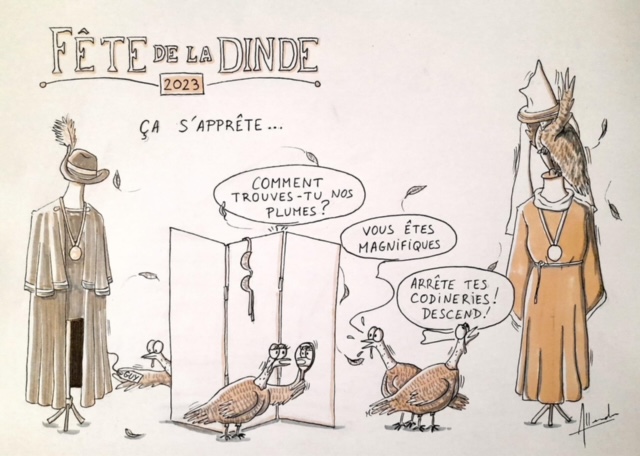 FÊTE DE LA DINDE
2023
ÇA S'APPRÊTE...
COMMENT
TROUVES-TU NOS
PLUMES?
VOUS ÊTES
MAGNIFIQUES
ARRÊTE TES
CODINERIES!
DESCEND!
GUY
Allard